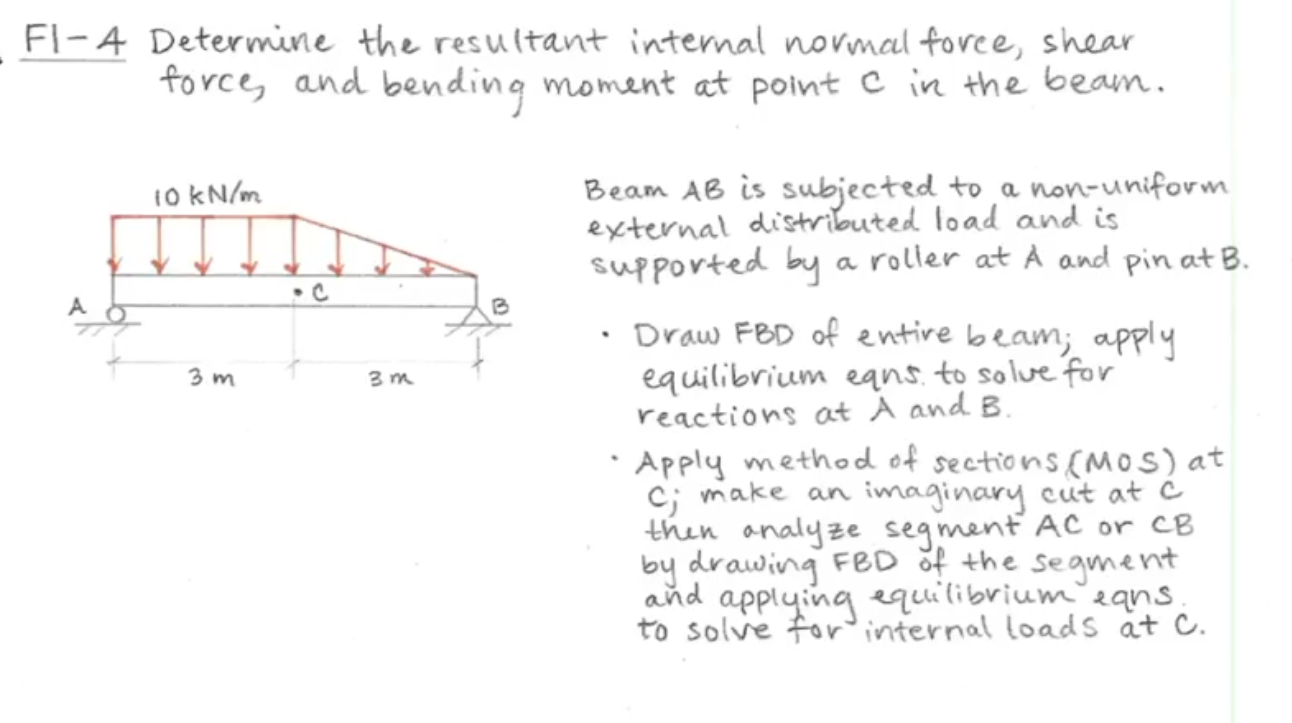 F1-4 Determine the resultant internal normal force, shear
force, and bending moment at point C in the beam.
10 kN/m
Beam AB is subjected to a non-uniform
external distributed load and is
supported by a roller at A and pin at B.
C
A
B
3 m
3 m
• Draw FBD of entire beam; apply
equilibrium eqns. to solve for
reactions at A and B.
• Apply method of sections (MOS) at
C; make an imaginary cut at C
then analyze segment AC or CB
by drawing FBD of the segment
and applying equilibrium eqns.
to solve for internal loads at C.